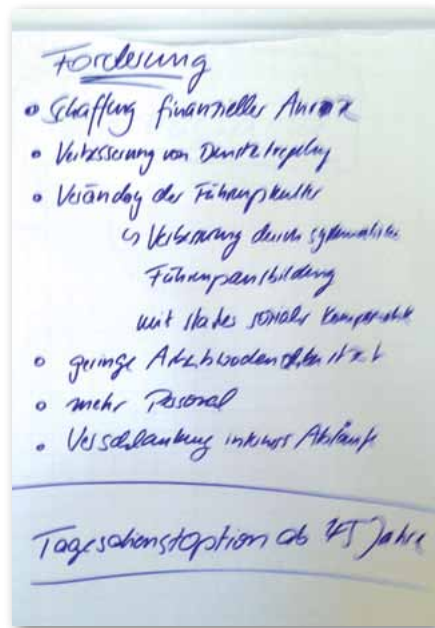 Forderung
• Schaffung finanzieller
• Verbesserung von
• Verändg der Führungskultur
↳ Verbesserung durch systematische
Führungsausbildung
mit starker sozialer Kompetente
• geringe
• mehr Personal
• Verschlankung interner Abläufe
Tagesdienstoption ab 45 Jahre